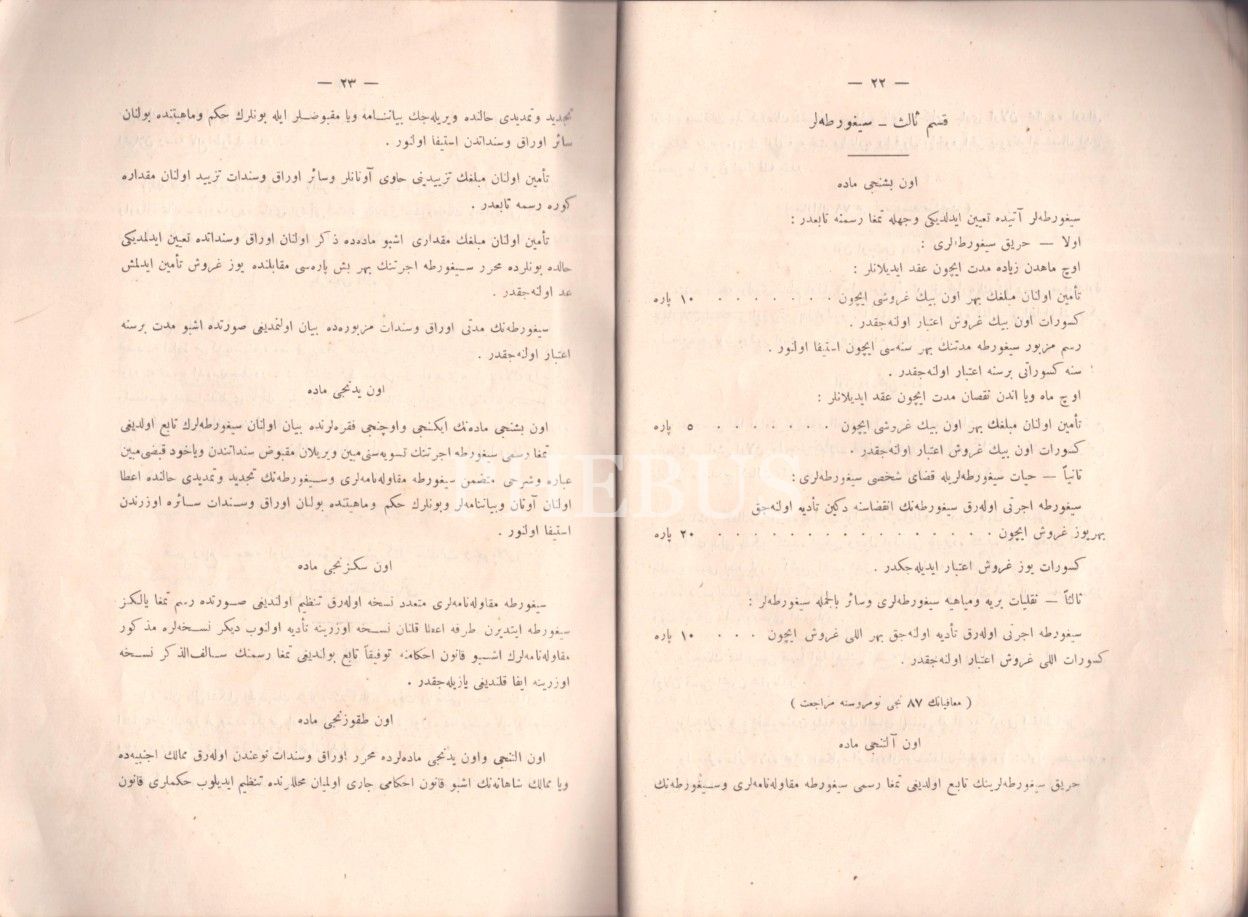 — ٢٢ —
قسم ثالث ـ سيغورطه‌لر
اون بشنجی ماده
سيغورطه‌لر آتيده تعيين ايدلديكی وجهله تمغا رسمنه تابعدر :
اولا — حريق سيغورطه‌لری :
اوچ ماهدن زياده مدت ايچون عقد ايديلانلر :
تأمين اولنان مبلغك بهر اون بيك غروشی ايچون . . . . . . . ١٠ پاره
كسورات اون بيك غروش اعتبار اولنه‌جقدر .
رسم مزبور سيغورطه مدتنك بهر سنه‌سی ايچون استيفا اولنور .
سنه كسوراتی برسنه اعتبار اولنه‌جقدر .
اوچ ماه ويا اندن نقصان مدت ايچون عقد ايديلانلر :
تأمين اولنان مبلغك بهر اون بيك غروشی ايچون . . . . . . ٥ پاره
كسورات اون بيك غروش اعتبار اولنه‌جقدر .
ثانياً — حيات سيغورطه‌لريله قضای شخصی سيغورطه‌لری :
سيغورطه اجرتی اوله‌رق سيغورطه‌نك انقضاسنه دكين تأديه اولنه‌جق
بهر يوز غروش ايچون . . . . . . . . . . . . . . . ٢٠ پاره
كسورات يوز غروش اعتبار ايديله‌جكدر .
ثالثاً — نقليات بريه ومياهيه سيغورطه‌لری وسائر بالجمله سيغورطه‌لر :
سيغورطه اجرتی اوله‌رق تأديه اولنه‌جق بهر اللی غروش ايچون . . . ١٠ پاره
كسورات اللی غروش اعتبار اولنه‌جقدر .
( معافياتك ٨٧ نجی نومروسنه مراجعت )
اون آلتنجی ماده
حريق سيغورطه‌لرينك تابع اولديغی تمغا رسمی سيغورطه مقاوله‌نامه‌لری وسيغورطه‌نك
— ٢٣ —
تجديد وتمديدی حالنده ويريله‌جك بياننامه ويا مقبوضلر ايله بونلرك حكم وماهيتنده بولنان
سائر اوراق وسنداتدن استيفا اولنور .
تأمين اولنان مبلغك تزييدينی حاوی آوانلر وسائر اوراق وسندات تزييد اولنان مقداره
كوره رسمه تابعدر .
تأمين اولنان مبلغك مقداری اشبو ماده‌ده ذكر اولنان اوراق وسنداتده تعيين ايدلمديكی
حالده بونلرده محرر سيغورطه اجرتنك بهر بش پاره‌سی مقابلنده يوز غروش تأمين ايدلمش
عد اولنه‌جقدر .
سيغورطه‌نك مدتی اوراق وسندات مزبوره‌ده بيان اولنمديغی صورتده اشبو مدت برسنه
اعتبار اولنه‌جقدر .
اون يدنجی ماده
اون بشنجی ماده‌نك ايكنجی واوچنجی فقره‌لرنده بيان اولنان سيغورطه‌لرك تابع اولديغی
تمغا رسمی سيغورطه اجرتنك تسويه‌سنی مبين ويريلان مقبوض سنداتندن وياخود قبضی مبين
عباره وشرحی متضمن سيغورطه مقاوله‌نامه‌لری وسيغورطه‌نك تجديد وتمديدی حالنده اعطا
اولنان آوتان وبياننامه‌لر وبونلرك حكم وماهيتنده بولنان اوراق وسندات سائره اوزرندن
استيفا اولنور .
اون سكزنجی ماده
سيغورطه مقاوله‌نامه‌لری متعدد نسخه اوله‌رق تنظيم اولنديغی صورتده رسم تمغا يالكز
سيغورطه ايتديرن طرفه اعطا قلنان نسخه اوزرينه تأديه اولنوب ديكر نسخه‌لره مذكور
مقاوله‌نامه‌لرك اشبو قانون احكامنه توفيقاً تابع بولنديغی تمغا رسمنك سالف‌الذكر نسخه
اوزرينه ايفا قلنديغی يازيله‌جقدر .
اون طقوزنجی ماده
اون التنجی واون يدنجی ماده‌لرده محرر اوراق وسندات نوعندن اوله‌رق ممالك اجنبيه‌ده
ويا ممالك شاهانه‌نك اشبو قانون احكامی جاری اولميان محللرنده تنظيم ايديلوب حكملری قانون
PHEBUS